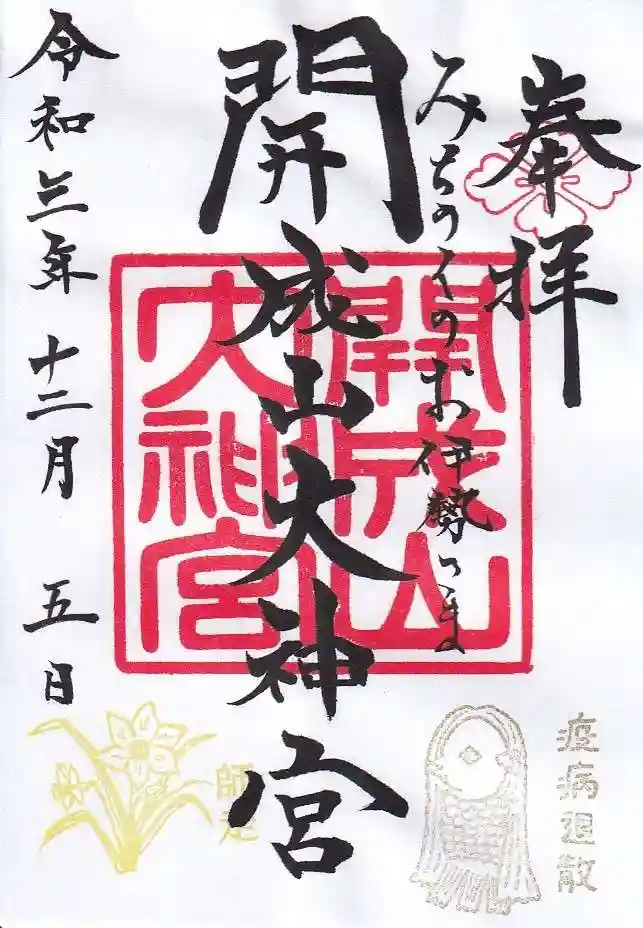 奉拝
みちのくのお伊勢さま
開成山大神宮
令和三年 十二月 五日
開成山
大神宮
疫病退散
師走